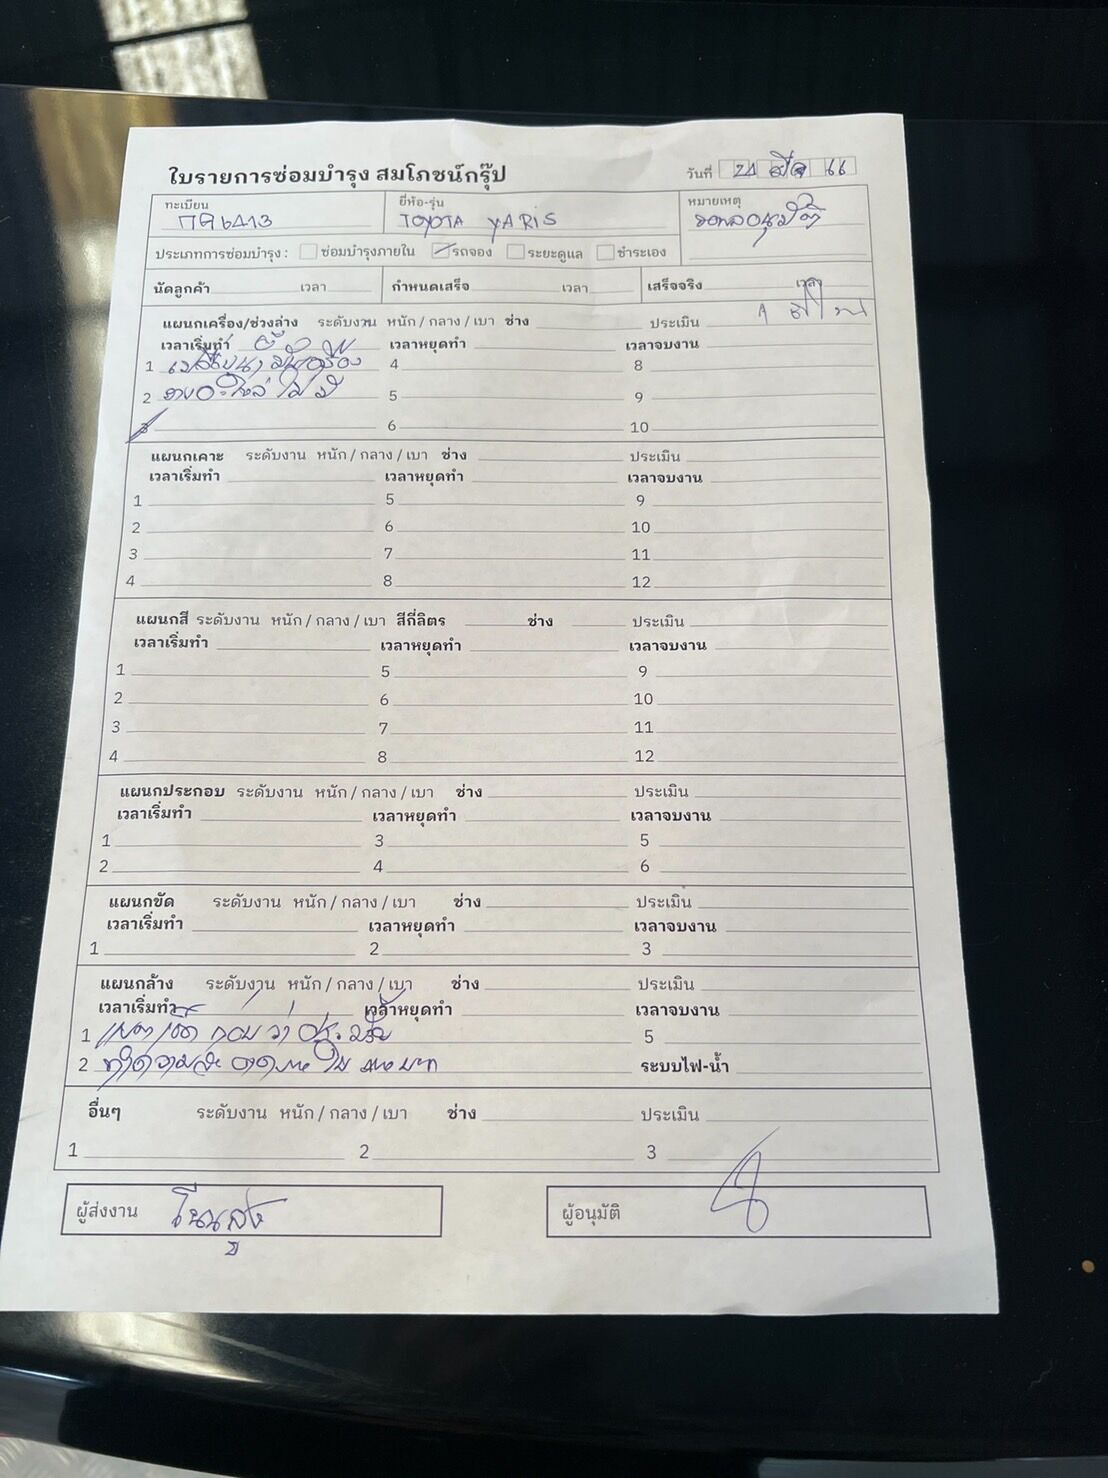 ใบรายการซ่อมบำรุง สมโภชน์กรุ๊ป
วันที่ 21 66
ทะเบียน
ยี่ห้อ-รุ่น TOYOTA YARIS
หมายเหตุ ขอทออนุมัติ
ประเภทการซ่อมบำรุง : ซ่อมบำรุงภายใน รถจอง ระยะดูแล ชำระเอง
นัดลูกค้า เวลา กำหนดเสร็จ เวลา เสร็จจริง เวลา
แผนกเครื่อง/ช่วงล่าง ระดับงาน หนัก / กลาง / เบา ช่าง ประเมิน
เวลาเริ่มทำ เวลาหยุดทำ เวลาจบงาน
1 เปลี่ยนน้ำมันเครื่อง 4 8
2 อะไหล่ ไม่มี 5 9
3 6 10
แผนกเคาะ ระดับงาน หนัก / กลาง / เบา ช่าง ประเมิน
เวลาเริ่มทำ เวลาหยุดทำ เวลาจบงาน
1 5 9
2 6 10
3 7 11
4 8 12
แผนกสี ระดับงาน หนัก / กลาง / เบา สีกี่ลิตร ช่าง ประเมิน
เวลาเริ่มทำ เวลาหยุดทำ เวลาจบงาน
1 5 9
2 6 10
3 7 11
4 8 12
แผนกประกอบ ระดับงาน หนัก / กลาง / เบา ช่าง ประเมิน
เวลาเริ่มทำ เวลาหยุดทำ เวลาจบงาน
1 3 5
2 4 6
แผนกขัด ระดับงาน หนัก / กลาง / เบา ช่าง ประเมิน
เวลาเริ่มทำ เวลาหยุดทำ เวลาจบงาน
1 2 3
แผนกล้าง ระดับงาน หนัก / กลาง / เบา ช่าง ประเมิน
เวลาเริ่มทำ เวลาหยุดทำ เวลาจบงาน
1 5
2 ระบบไฟ-น้ำ
อื่นๆ ระดับงาน หนัก / กลาง / เบา ช่าง ประเมิน
1 2 3
ผู้ส่งงาน
ผู้อนุมัติ